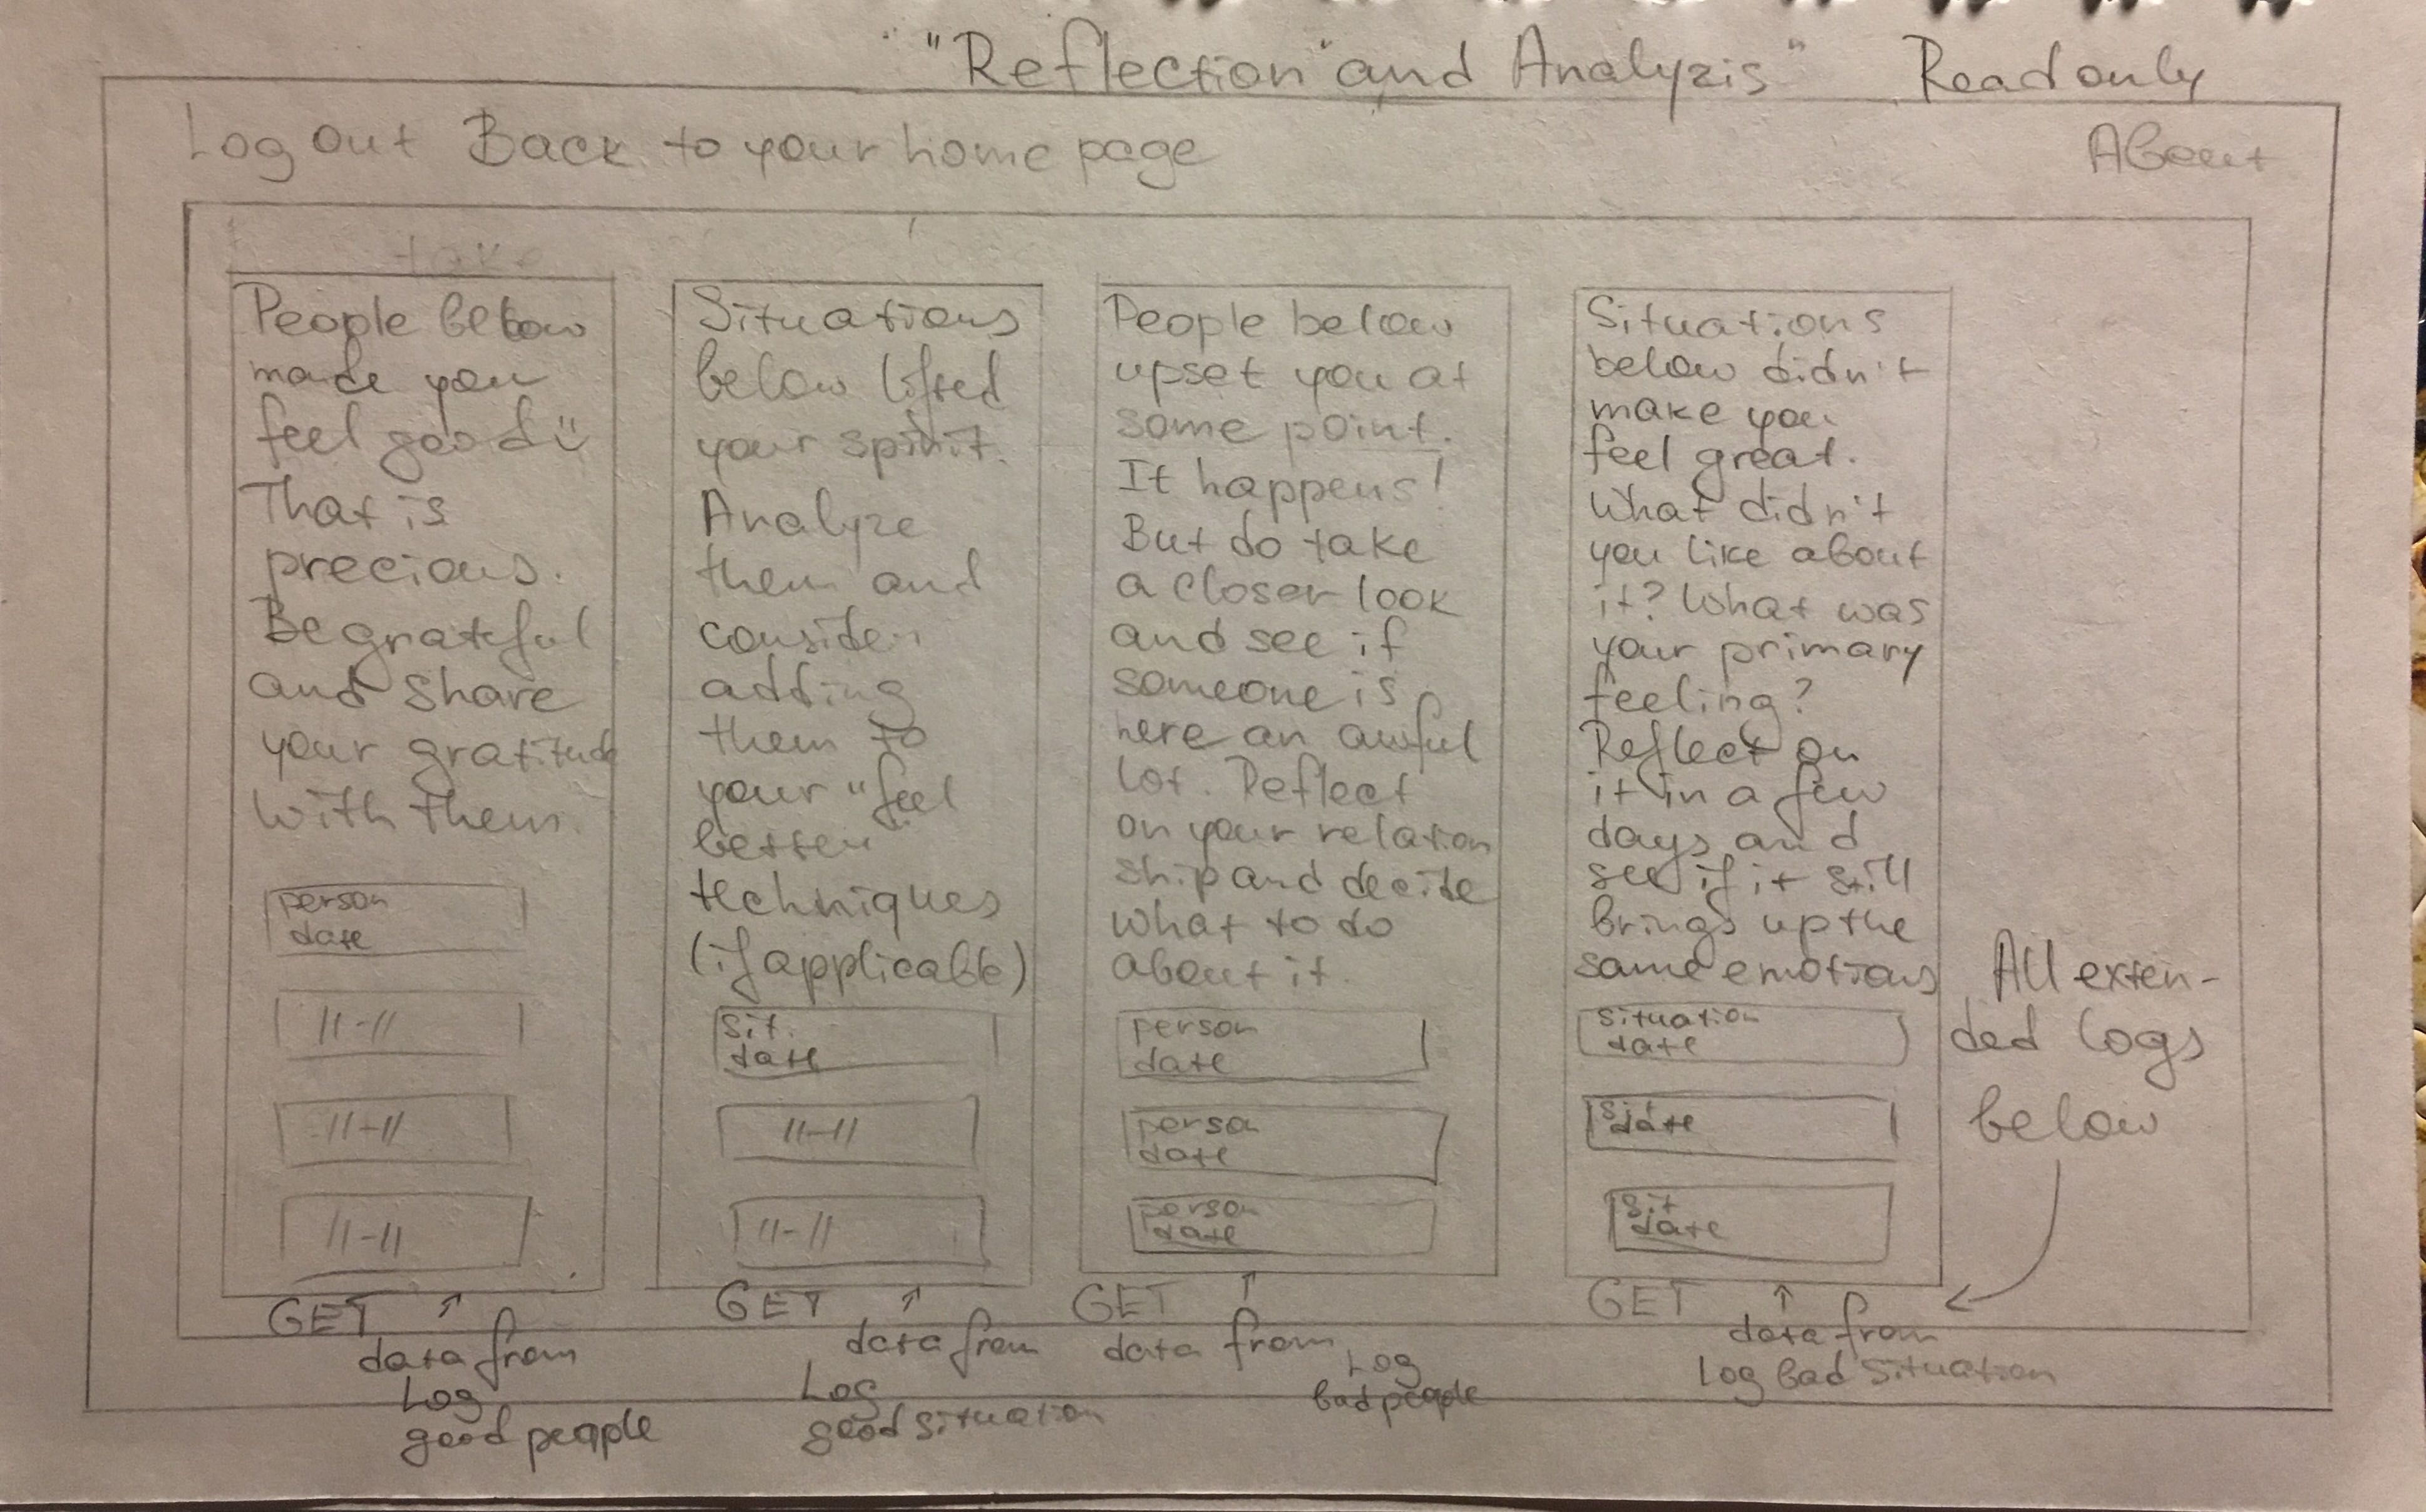 "Reflection" and Analyzis" Read only
Log out Back to your home page About
take
People below
made you
feel good
That is
precious.
Be grateful
and share
your gratitude
with them.
person
date
11-11
11-11
11-11
GET
data from
Log
good people
Situations
below lifted
your spirit.
Analyze
them and
consider
adding
them to
your "feel
better"
techniques
(if applicable)
Sit.
date
11-11
11-11
GET
data from
Log
good situation
People below
upset you at
some point.
It happens!
But do take
a closer look
and see if
someone is
here an awful
lot. Reflect
on your relation
ship and decide
what to do
about it.
person
date
person
date
person
date
GET
data from
Log
bad people
Situations
below didn't
make you
feel great.
What didn't
you like about
it? What was
your primary
feeling?
Reflect on
it in a few
days and
see if it still
brings up the
same emotions
situation
date
sit
date
sit
date
GET
data from
Log bad situation
All exten-
ded logs
below